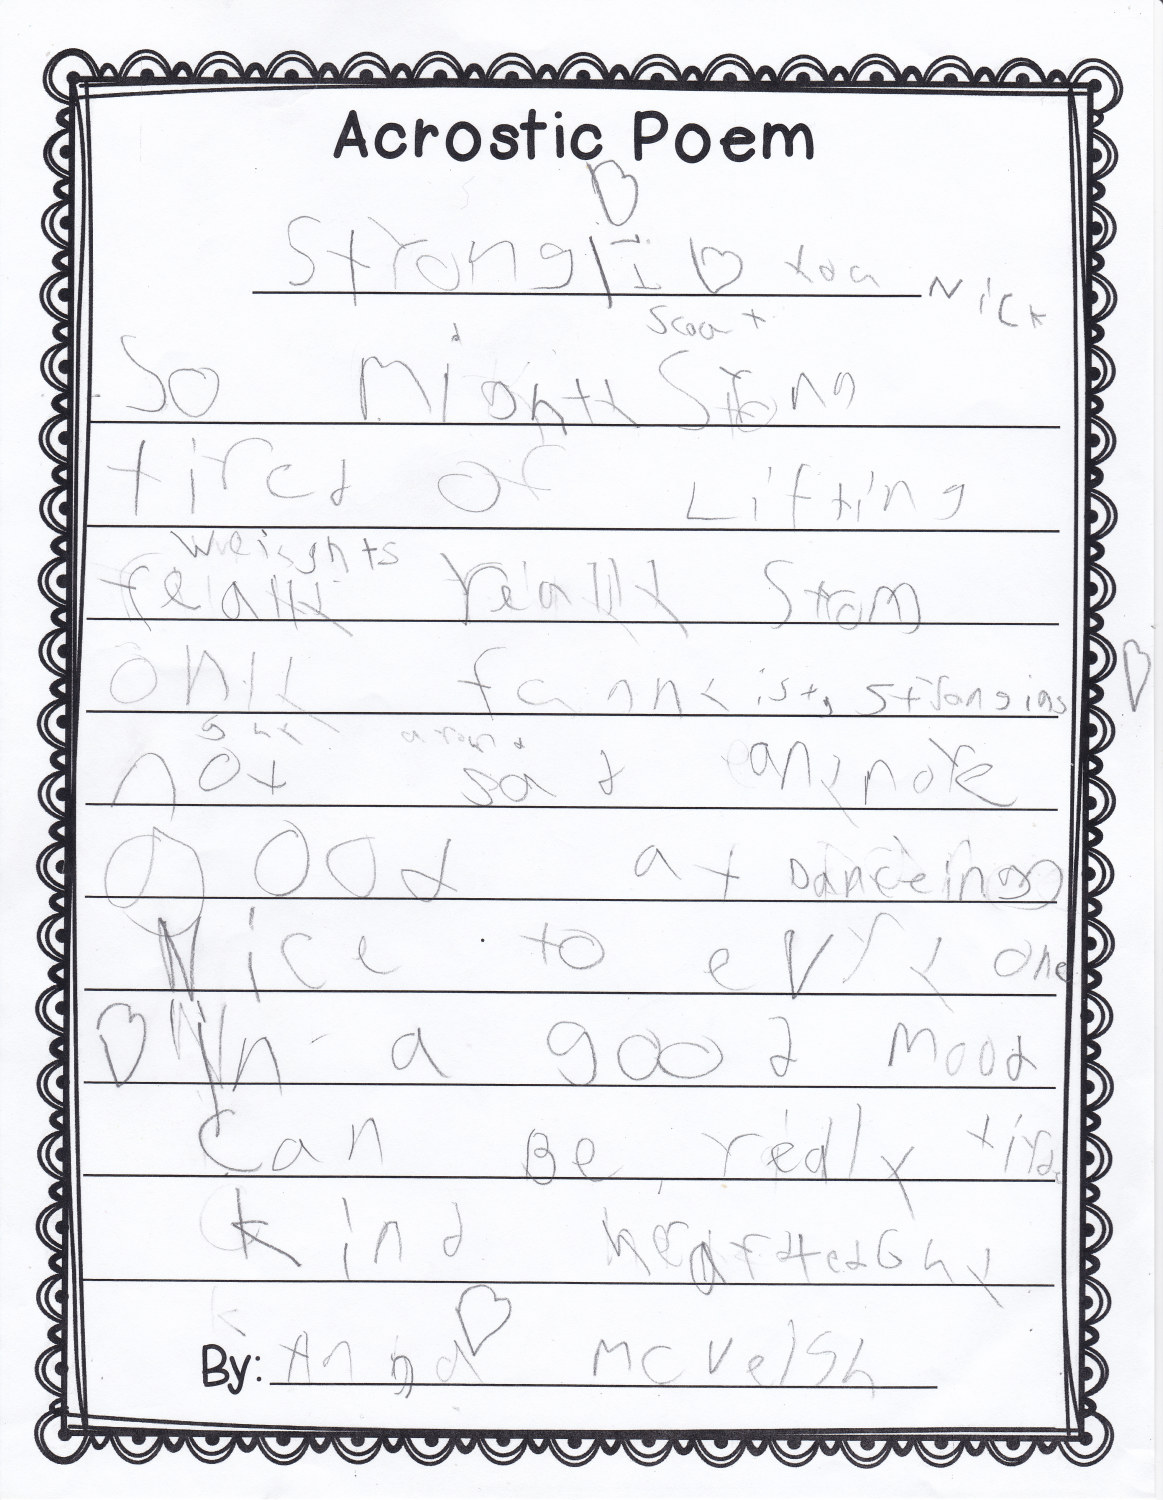 Acrostic Poem
Strong I ♡ you Nick
Scout
So mighty Strong
tired of Lifting
weights
really really Strom
only funny ist, strongins
guy around
not sad anymore
good at Danceing
Nice to evry one
♡ In a good mood
Can Be really tird
kind heartted Guy
By: Anna McVelsh